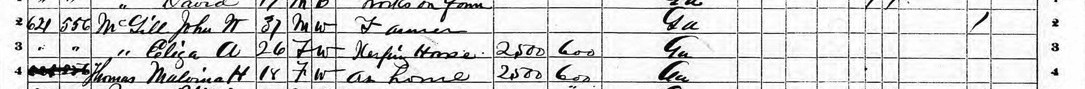 " " " David 17 M B Works on Farm Ga
2 621 556 McGill John W 37 M W Farmer Ga 1 2
3 " " " Eliza A 26 F W Keeping House 2500 600 Ga 3
4 Thomas Malvina H 18 F W at home 2500 600 Ga 4